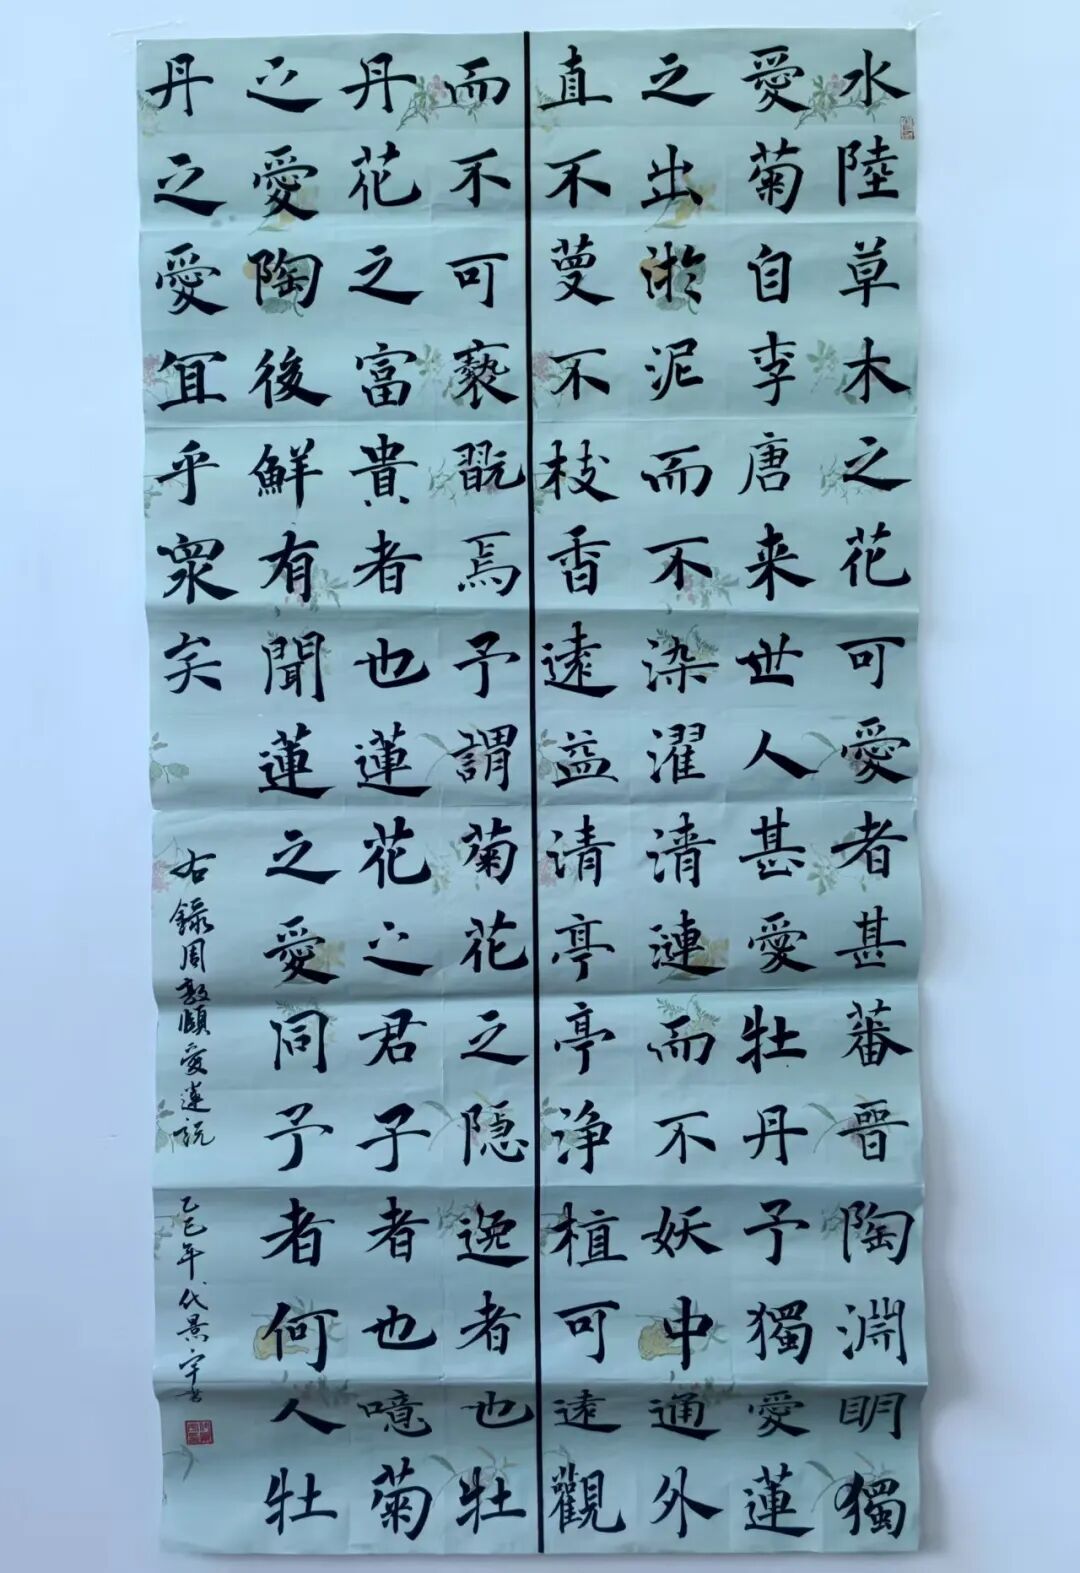 水陸草木之花可愛者甚蕃晉陶淵明獨
愛菊自李唐来世人甚愛牡丹予獨愛蓮
之出淤泥而不染濯清漣而不妖中通外
直不蔓不枝香遠益清亭亭净植可遠觀
而不可褻翫焉予謂菊花之隐逸者也牡
丹花之富貴者也蓮花之君子者也噫菊
之愛陶後鮮有聞蓮之愛同予者何人牡
丹之愛宜乎衆矣
右錄周敦頤愛蓮説
乙巳年代景宇書